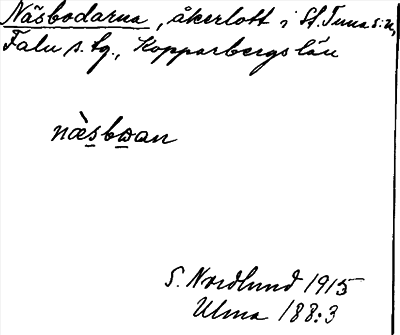 Näsbodarna, åkerlott i St. Tuna s:n,
Falu s. tg., Kopparbergs län
næ̀sbωan
S. Nordlund 1915
Ulma 188:3